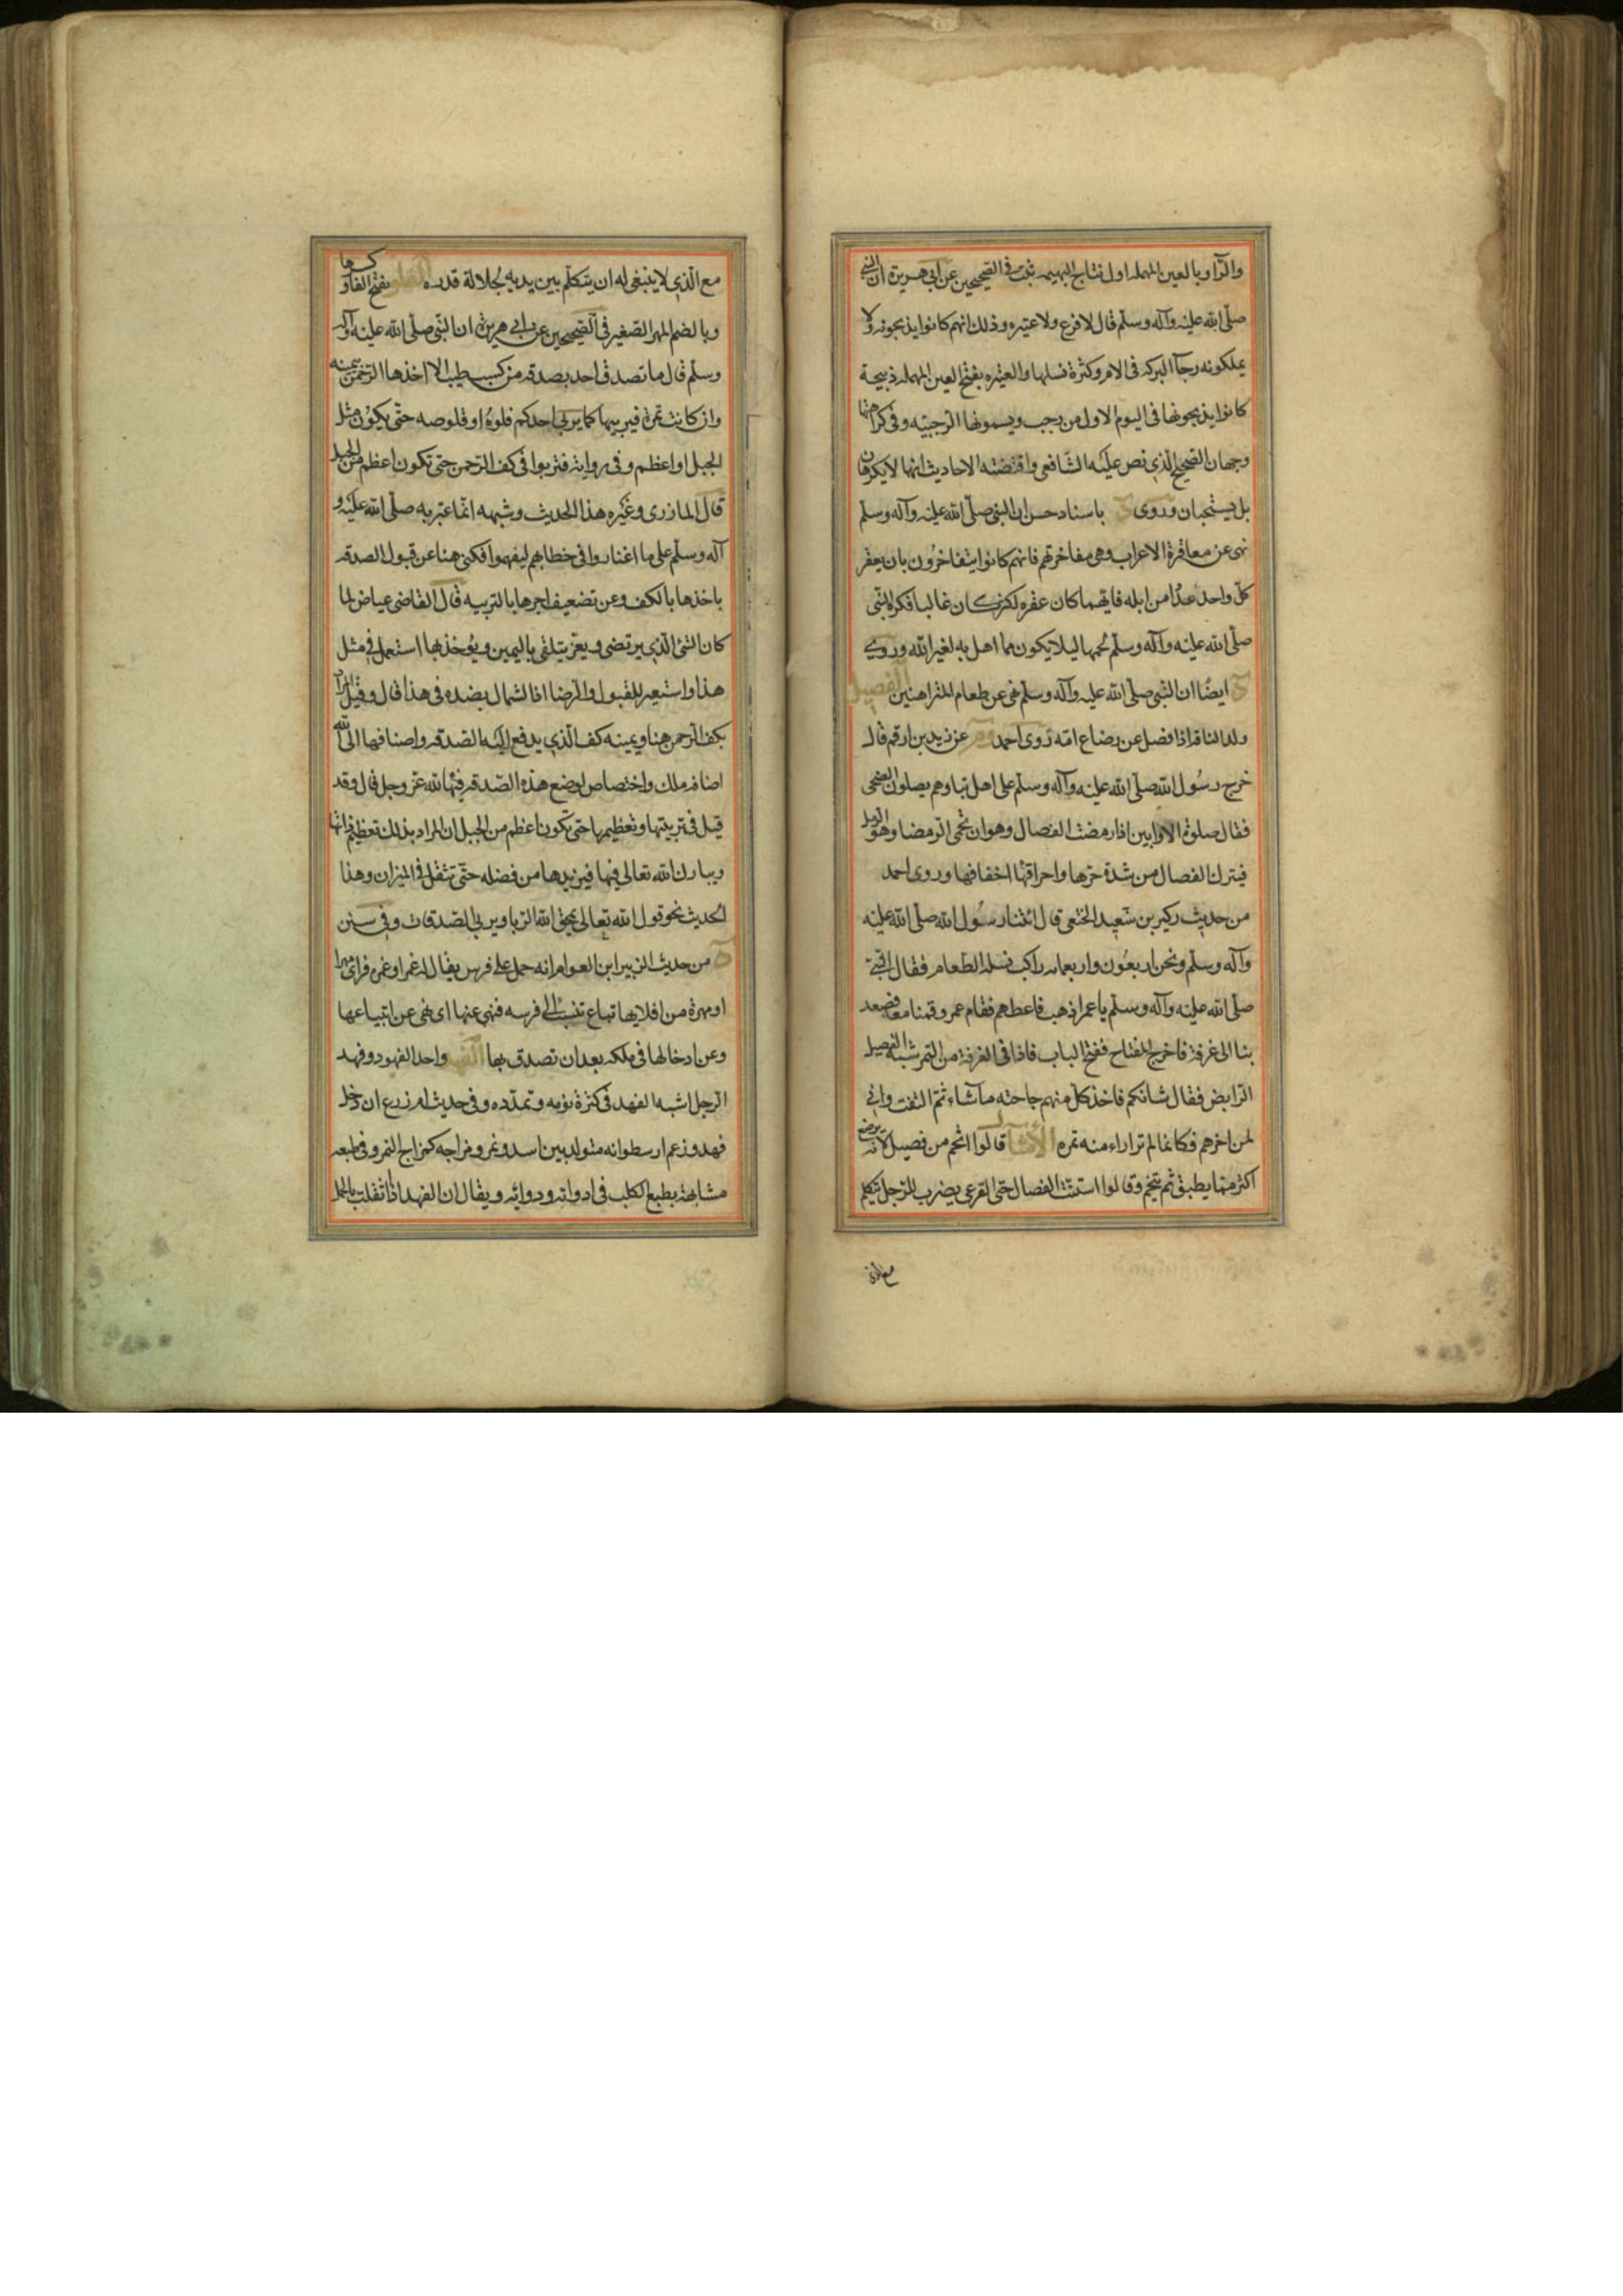 والرآ وبالعين المهمله اول نتاج البهيمه ثبت فى الصحيحين عن ابى هريرة ان النبى
صلى الله عليه وآله وسلم قال لا فرع ولا عتيره وذلك انهم كانوا يذبحونه ولا
يملكونه رجآ البركه فى الام وكثرة نسلها والعتيره بفتح العين المهمله ذبيحة
كانوا يذبحونها فى اليوم الاول من رجب ويسمونها الرجبيه وفى كراهتها
وجهان الصحيح الذى نص عليه الشافعى واقتضته الاحاديث انها لا يكرهان
بل يستحبان وروى باسناد حسن ان النبى صلى الله عليه وآله وسلم
نهى عن معاقرة الاعراب وهى مفاخرتهم فانهم كانوا يتفاخرون بان يعقر
كل واحد عددا من ابله فايهما كان عقره اكثر كان غالبا فكره النبى
صلى الله عليه وآله وسلم لحمها ليلا يكون مما اهل به لغير الله وروى
ايضا ان النبى صلى الله عليه وآله وسلم نهى عن طعام المتراهنين الفصيل
ولد الناقة اذا فصل عن رضاع امه روى احمد وم عن زيد بن ارقم قال
خرج رسول الله صلى الله عليه وآله وسلم على اهل قبا وهم يصلون الضحى
فقال صلوة الاوابين اذا رمضت الفصال وهو ان تحمى الرمضا وهو الرمل
فيترك الفصال من شدة حرها واحراقها اخفافها وروى احمد
من حديث ركين بن سعيد الخثعى قال اتينا رسول الله صلى الله عليه
وآله وسلم ونحن اربعون واربعمايه راكب نسله الطعام فقال النبى
صلى الله عليه وآله وسلم يا عمر اذهب فاعطهم فقام عمر وقمنا معه فصعد
بنا الى غرفة فاخرج المفتاح ففتح الباب فاذا فى الغرفة من التمر شبه الفصيل
الرابض فقال شانكم فاخذ كل منهم حاجته مآ شاء ثم التفت وانى
لمن اخرهم فكانما لم نزاراء منه تمره الأمثال قالوا اتخم من فصيل لانه يرضع
اكثر مما يطبق ثم يتخم وقالوا استنت الفصال حتى القرعى يضرب للرجل يتكلم
مع الذى
مع الذى لا ينبغى له ان يتكلم بين يديه لجلالة قدره الفلو بفتح الفاو كسرها
وبالضم المهر الصغير فى الصحيحين عن ابى هريرة ان النبى صلى الله عليه وآله
وسلم قال ما تصدق احد بصدقه من كسب طيب الا اخذها الرحمن بيمينه
وان كانت تمرة فيربيها كما يربى احدكم فلوه او قلوصه حتى يكون مثل
الجبل او اعظم وفى رواية فتربوا فى كف الرحمن حتى تكون اعظم من الجبل
قال المازرى وغيره هذا الحديث وشبهه انما عبر به صلى الله عليه و
آله وسلم على ما اعتاروا فى خطابهم ليفهموا فكنى هنا عن قبول الصدقه
باخذها بالكف وعن تضعيف اجرها بالتربيه قال القاضى عياض لما
كان الشئ الذى يرتضى ويعز يتلقى باليمين ويؤخذ بها استعمل فى مثل
هذا واستعير للقبول والرضا اذا الشمال بضده فى هذا قال وقيل المراد
بكف الرحمن هنا ويمينه كف الذى يدفع اليه الصدقه واضافها الى الله
اضافة ملك واختصاص لوضع هذه الصدقه فيها لله عز وجل قال وقد
قيل فى تربيتها وتعظيمها حتى تكون اعظم من الجبل ان المراد بذلك تعظيم ذاتها
ويبارك الله تعالى فيها فيزيدها من فضله حتى تثقل فى الميزان وهذا
الحديث نحو قول الله تعالى يمحق الله الربا ويربى الصدقات وفى سنن
من حديث الزبير ابن العوام انه حمل على فرس يقال له غمر او غمره فراى مهرا
او مهرة من افلايها تباع تنسب الى فرسه فنهى عنها اى نهى عن ابتياعها
وعن ادخالها فى ملكه بعد ان تصدق بها الفهد واحد الفهود وفهد
الرجل اشبه الفهد فى كثرة نومه وتمدده وفى حديث ام زرع ان دخل
فهد وزعم ارسطو انه متولد بين اسد ونمر ومزاجه كمزاج النمر وفى طبعه
مشابهة بطبع الكلب فى ادواته ودوائه ويقال ان الفهد اذا ثقلت بالحمل